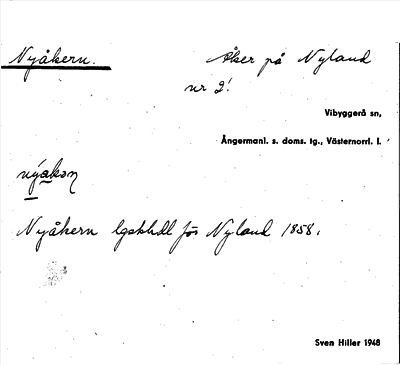 Nyåkern. Åker på Nyland
nr 2!
Vibyggerå sn,
Ångermanl. s. doms. tg., Västernorrl. l.
nýakən
Nyåkern lgskhdl för Nyland 1858.
Sven Hiller 1948